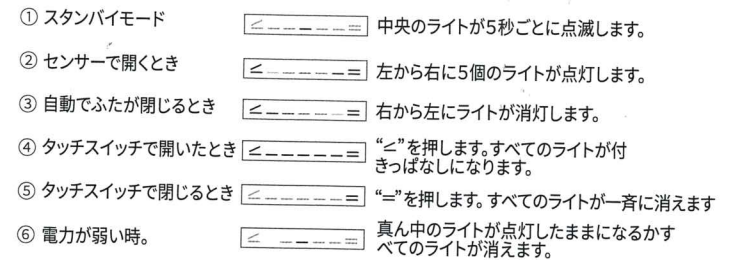 ① スタンバイモード 中央のライトが5秒ごとに点滅します。
② センサーで開くとき 左から右に5個のライトが点灯します。
③ 自動でふたが閉じるとき 右から左にライトが消灯します。
④ タッチスイッチで開いたとき “≤”を押します。すべてのライトが付
きっぱなしになります。
⑤ タッチスイッチで閉じるとき “=”を押します。すべてのライトが一斉に消えます
⑥ 電力が弱い時。 真ん中のライトが点灯したままになるかす
べてのライトが消えます。